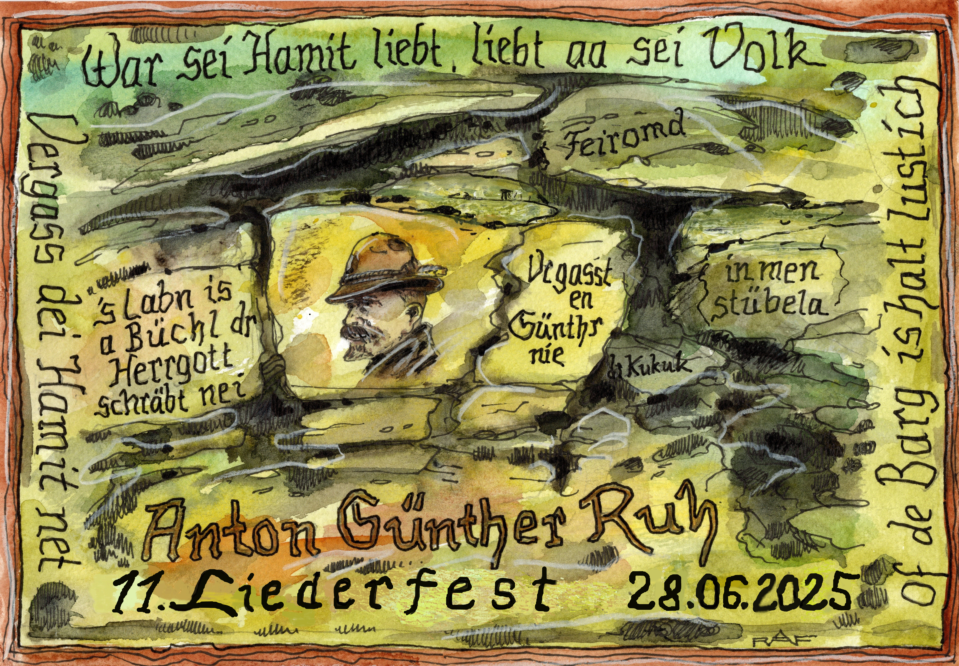 War sei Hamit liebt, liebt aa sei Volk
Vergass dei Hamit net
Feiromd
's Labn is
a Büchl dr
Herrgott
schräbt nei
Vrgasst
en
Günthr
nie
in men
stübela
dr Kukuk
of de Barg is halt lustich
Anton Günther Ruh
11. Liederfest 28.06.2025
RAF